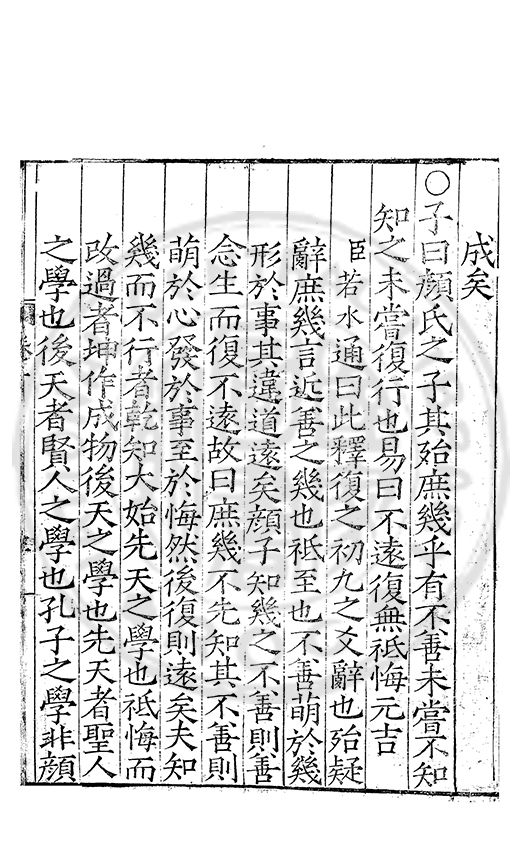 成矣
○子曰顔氏之子其殆庶幾乎有不善未嘗不知
知之未嘗復行也易曰不遠復無祗悔元吉
臣若水通曰此釋復之初九之爻辭也殆疑
辭庶幾言近善之幾也祗至也不善萌於幾
形於事其違道遠矣顔子知幾之不善則善
念生而復不遠故曰庶幾不先知其不善則
萌於心發於事至於悔然後復則遠矣夫知
幾而不行者乾知大始先天之學也祗悔而
改過者坤作成物後天之學也先天者聖人
之學也後天者賢人之學也孔子之學非顔